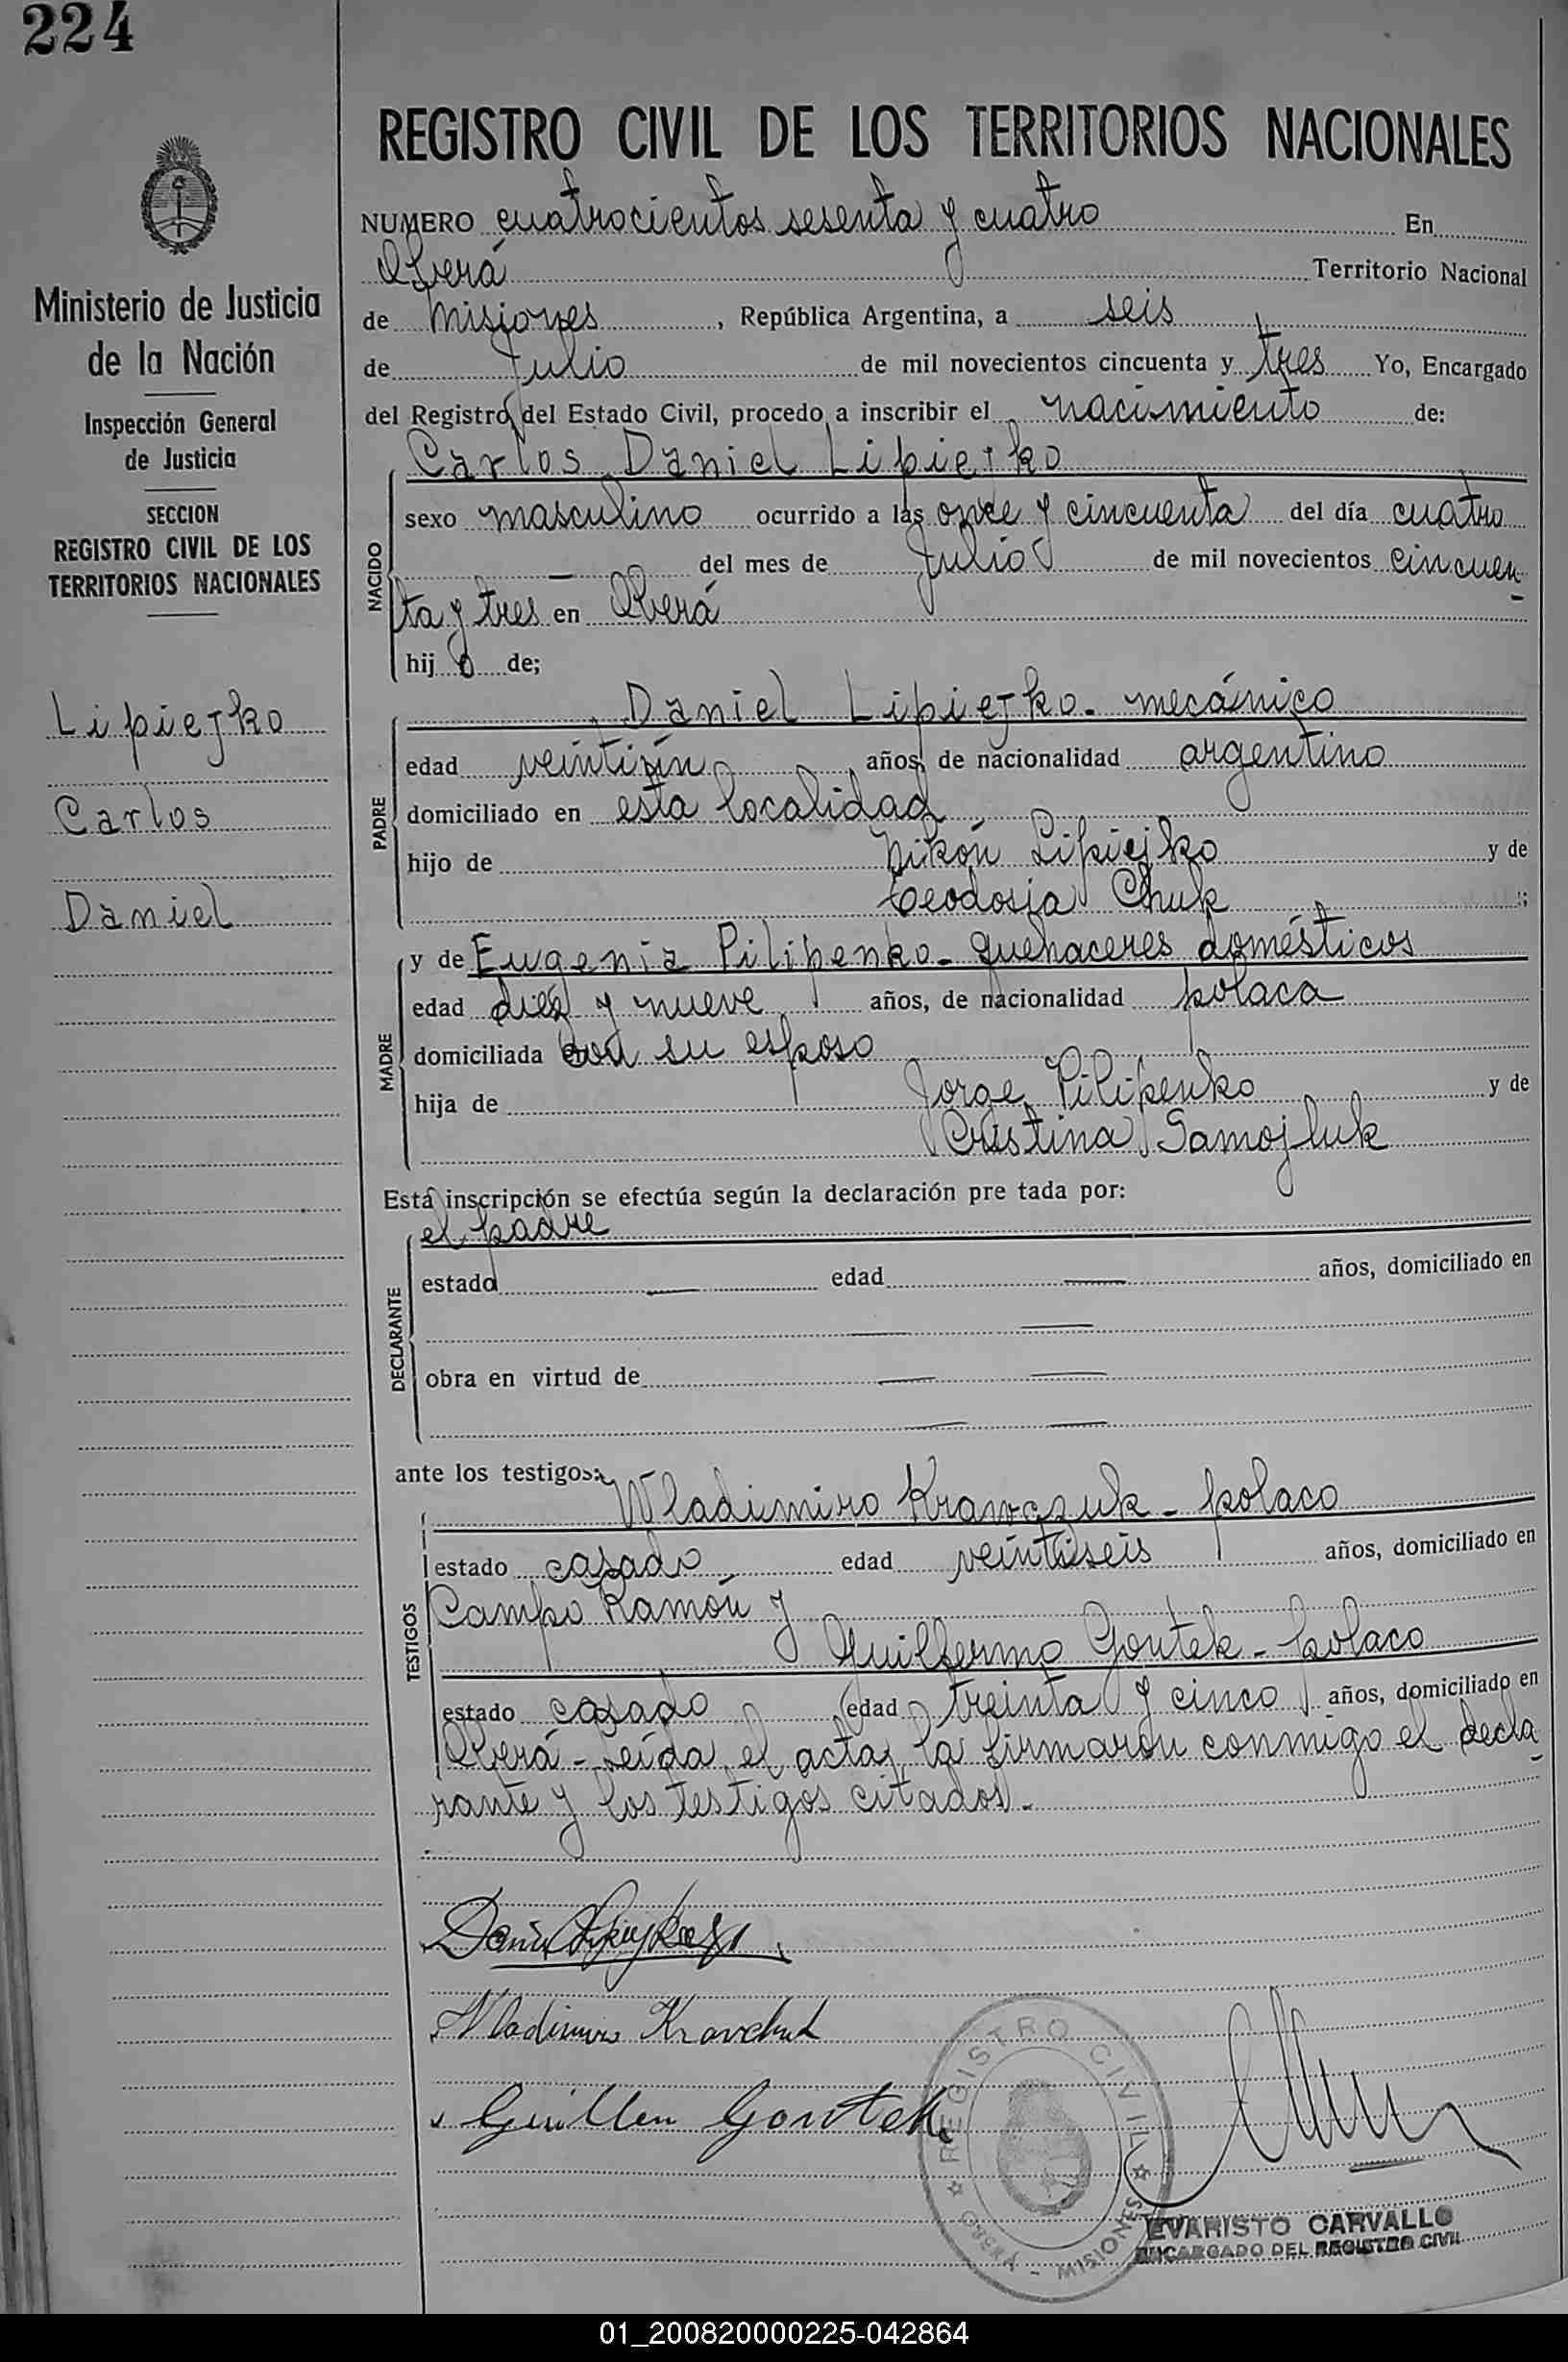 224
REGISTRO CIVIL DE LOS TERRITORIOS NACIONALES
Ministerio de Justicia
de la Nación
Inspección General
de Justicia
SECCION
REGISTRO CIVIL DE LOS
TERRITORIOS NACIONALES
Lipiejko
Carlos
Daniel
NUMERO cuatrocientos sesenta y cuatro En
Oberá Territorio Nacional
de Misiones, República Argentina, a seis
de Julio de mil novecientos cincuenta y tres Yo, Encargado
del Registro del Estado Civil, procedo a inscribir el nacimiento de:
Carlos Daniel Lipiejko
NACIDO
sexo masculino ocurrido a las once y cincuenta del día cuatro
— del mes de Julio de mil novecientos cincuen-
ta y tres en Oberá
hijo de;
PADRE
Daniel Lipiejko - mecánico
edad veintiún años, de nacionalidad argentino
domiciliado en esta localidad
hijo de Nikón Lipiejko y de
Teodosia Chuk;
MADRE
y de Eugenia Pilipenko - quehaceres domésticos
edad diez y nueve años, de nacionalidad polaca
domiciliada con su esposo
hija de Jorge Pilipenko y de
Cristina Samojluk
Está inscripción se efectúa según la declaración pre tada por:
el padre
DECLARANTE
estado — edad — años, domiciliado en
— —
obra en virtud de — —
— —
ante los testigos:
TESTIGOS
Wladimiro Krawczuk - polaco
estado casado edad veintiseis años, domiciliado en
Campo Ramón y
Guillermo Gontek - polaco
estado casado edad treinta y cinco años, domiciliado en
Oberá - Leída el acta, la firmaron conmigo el decla-
rante y los testigos citados.-
Wladimiro Kravchuk
Guillen Gontek
REGISTRO CIVIL
OBERÁ - MISIONES
EVARISTO CARVALLO
ENCARGADO DEL REGISTRO CIVIL
01_200820000225-042864